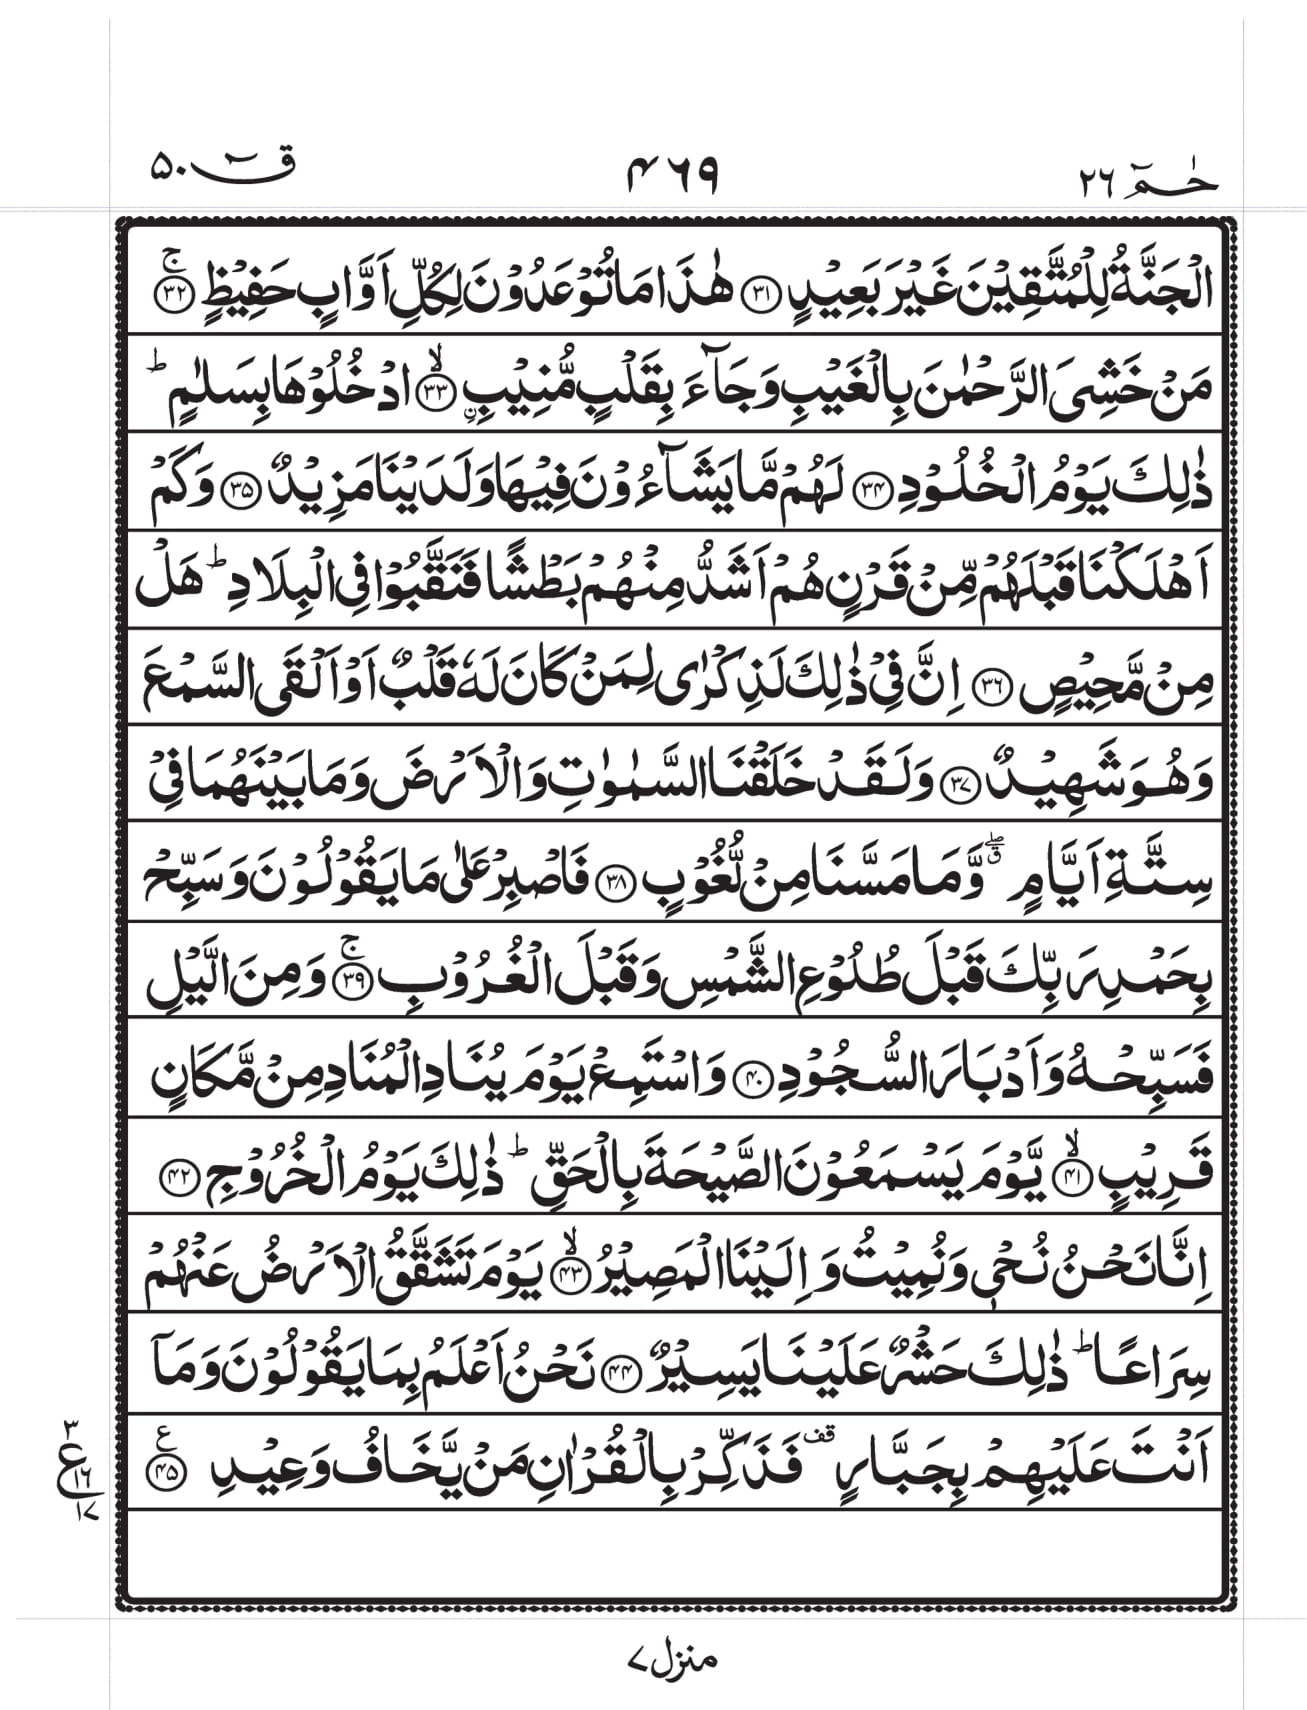 حٰمٓ ٢٦
۴٦٩
قٓ ۵۰
الْجَنَّةُ لِلْمُتَّقِيْنَ غَيْرَ بَعِيْدٍ ﴿۳۱﴾ هٰذَا مَا تُوْعَدُوْنَ لِكُلِّ اَوَّابٍ حَفِيْظٍ ۚ ﴿۳۲﴾
مَنْ خَشِىَ الرَّحْمٰنَ بِالْغَيْبِ وَجَآءَ بِقَلْبٍ مُّنِيْبِ ۙ ﴿۳۳﴾ ن ادْخُلُوْهَا بِسَلٰمٍ ؕ
ذٰلِكَ يَوْمُ الْخُلُوْدِ ﴿۳۴﴾ لَهُمْ مَّا يَشَآءُوْنَ فِيْهَا وَلَدَيْنَا مَزِيْدٌ ﴿۳۵﴾ وَكَمْ
اَهْلَكْنَا قَبْلَهُمْ مِّنْ قَرْنٍ هُمْ اَشَدُّ مِنْهُمْ بَطْشًا فَنَقَّبُوْا فِى الْبِلَادِ ؕ هَلْ
مِنْ مَّحِيْصٍ ﴿۳۶﴾ اِنَّ فِىْ ذٰلِكَ لَذِكْرٰى لِمَنْ كَانَ لَهٗ قَلْبٌ اَوْ اَلْقَى السَّمْعَ
وَهُوَ شَهِيْدٌ ﴿۳۷﴾ وَلَقَدْ خَلَقْنَا السَّمٰوٰتِ وَالْاَرْضَ وَمَا بَيْنَهُمَا فِىْ
سِتَّةِ اَيَّامٍ ۖق وَّمَا مَسَّنَا مِنْ لُّغُوْبٍ ﴿۳۸﴾ فَاصْبِرْ عَلٰى مَا يَقُوْلُوْنَ وَسَبِّحْ
بِحَمْدِ رَبِّكَ قَبْلَ طُلُوْعِ الشَّمْسِ وَقَبْلَ الْغُرُوْبِ ۚ ﴿۳۹﴾ وَمِنَ الَّيْلِ
فَسَبِّحْهُ وَاَدْبَارَ السُّجُوْدِ ﴿۴۰﴾ وَاسْتَمِعْ يَوْمَ يُنَادِ الْمُنَادِ مِنْ مَّكَانٍ
قَرِيْبٍ ۙ ﴿۴۱﴾ يَّوْمَ يَسْمَعُوْنَ الصَّيْحَةَ بِالْحَقِّ ؕ ذٰلِكَ يَوْمُ الْخُرُوْجِ ﴿۴۲﴾
اِنَّا نَحْنُ نُحْىٖ وَنُمِيْتُ وَاِلَيْنَا الْمَصِيْرُ ۙ ﴿۴۳﴾ يَوْمَ تَشَقَّقُ الْاَرْضُ عَنْهُمْ
سِرَاعًا ؕ ذٰلِكَ حَشْرٌ عَلَيْنَا يَسِيْرٌ ﴿۴۴﴾ نَحْنُ اَعْلَمُ بِمَا يَقُوْلُوْنَ وَمَآ
اَنْتَ عَلَيْهِمْ بِجَبَّارٍ قف فَذَكِّرْ بِالْقُرْاٰنِ مَنْ يَّخَافُ وَعِيْدِ ع ﴿۴۵﴾
۳
ع
۱٦
۱۷
منزل ۷